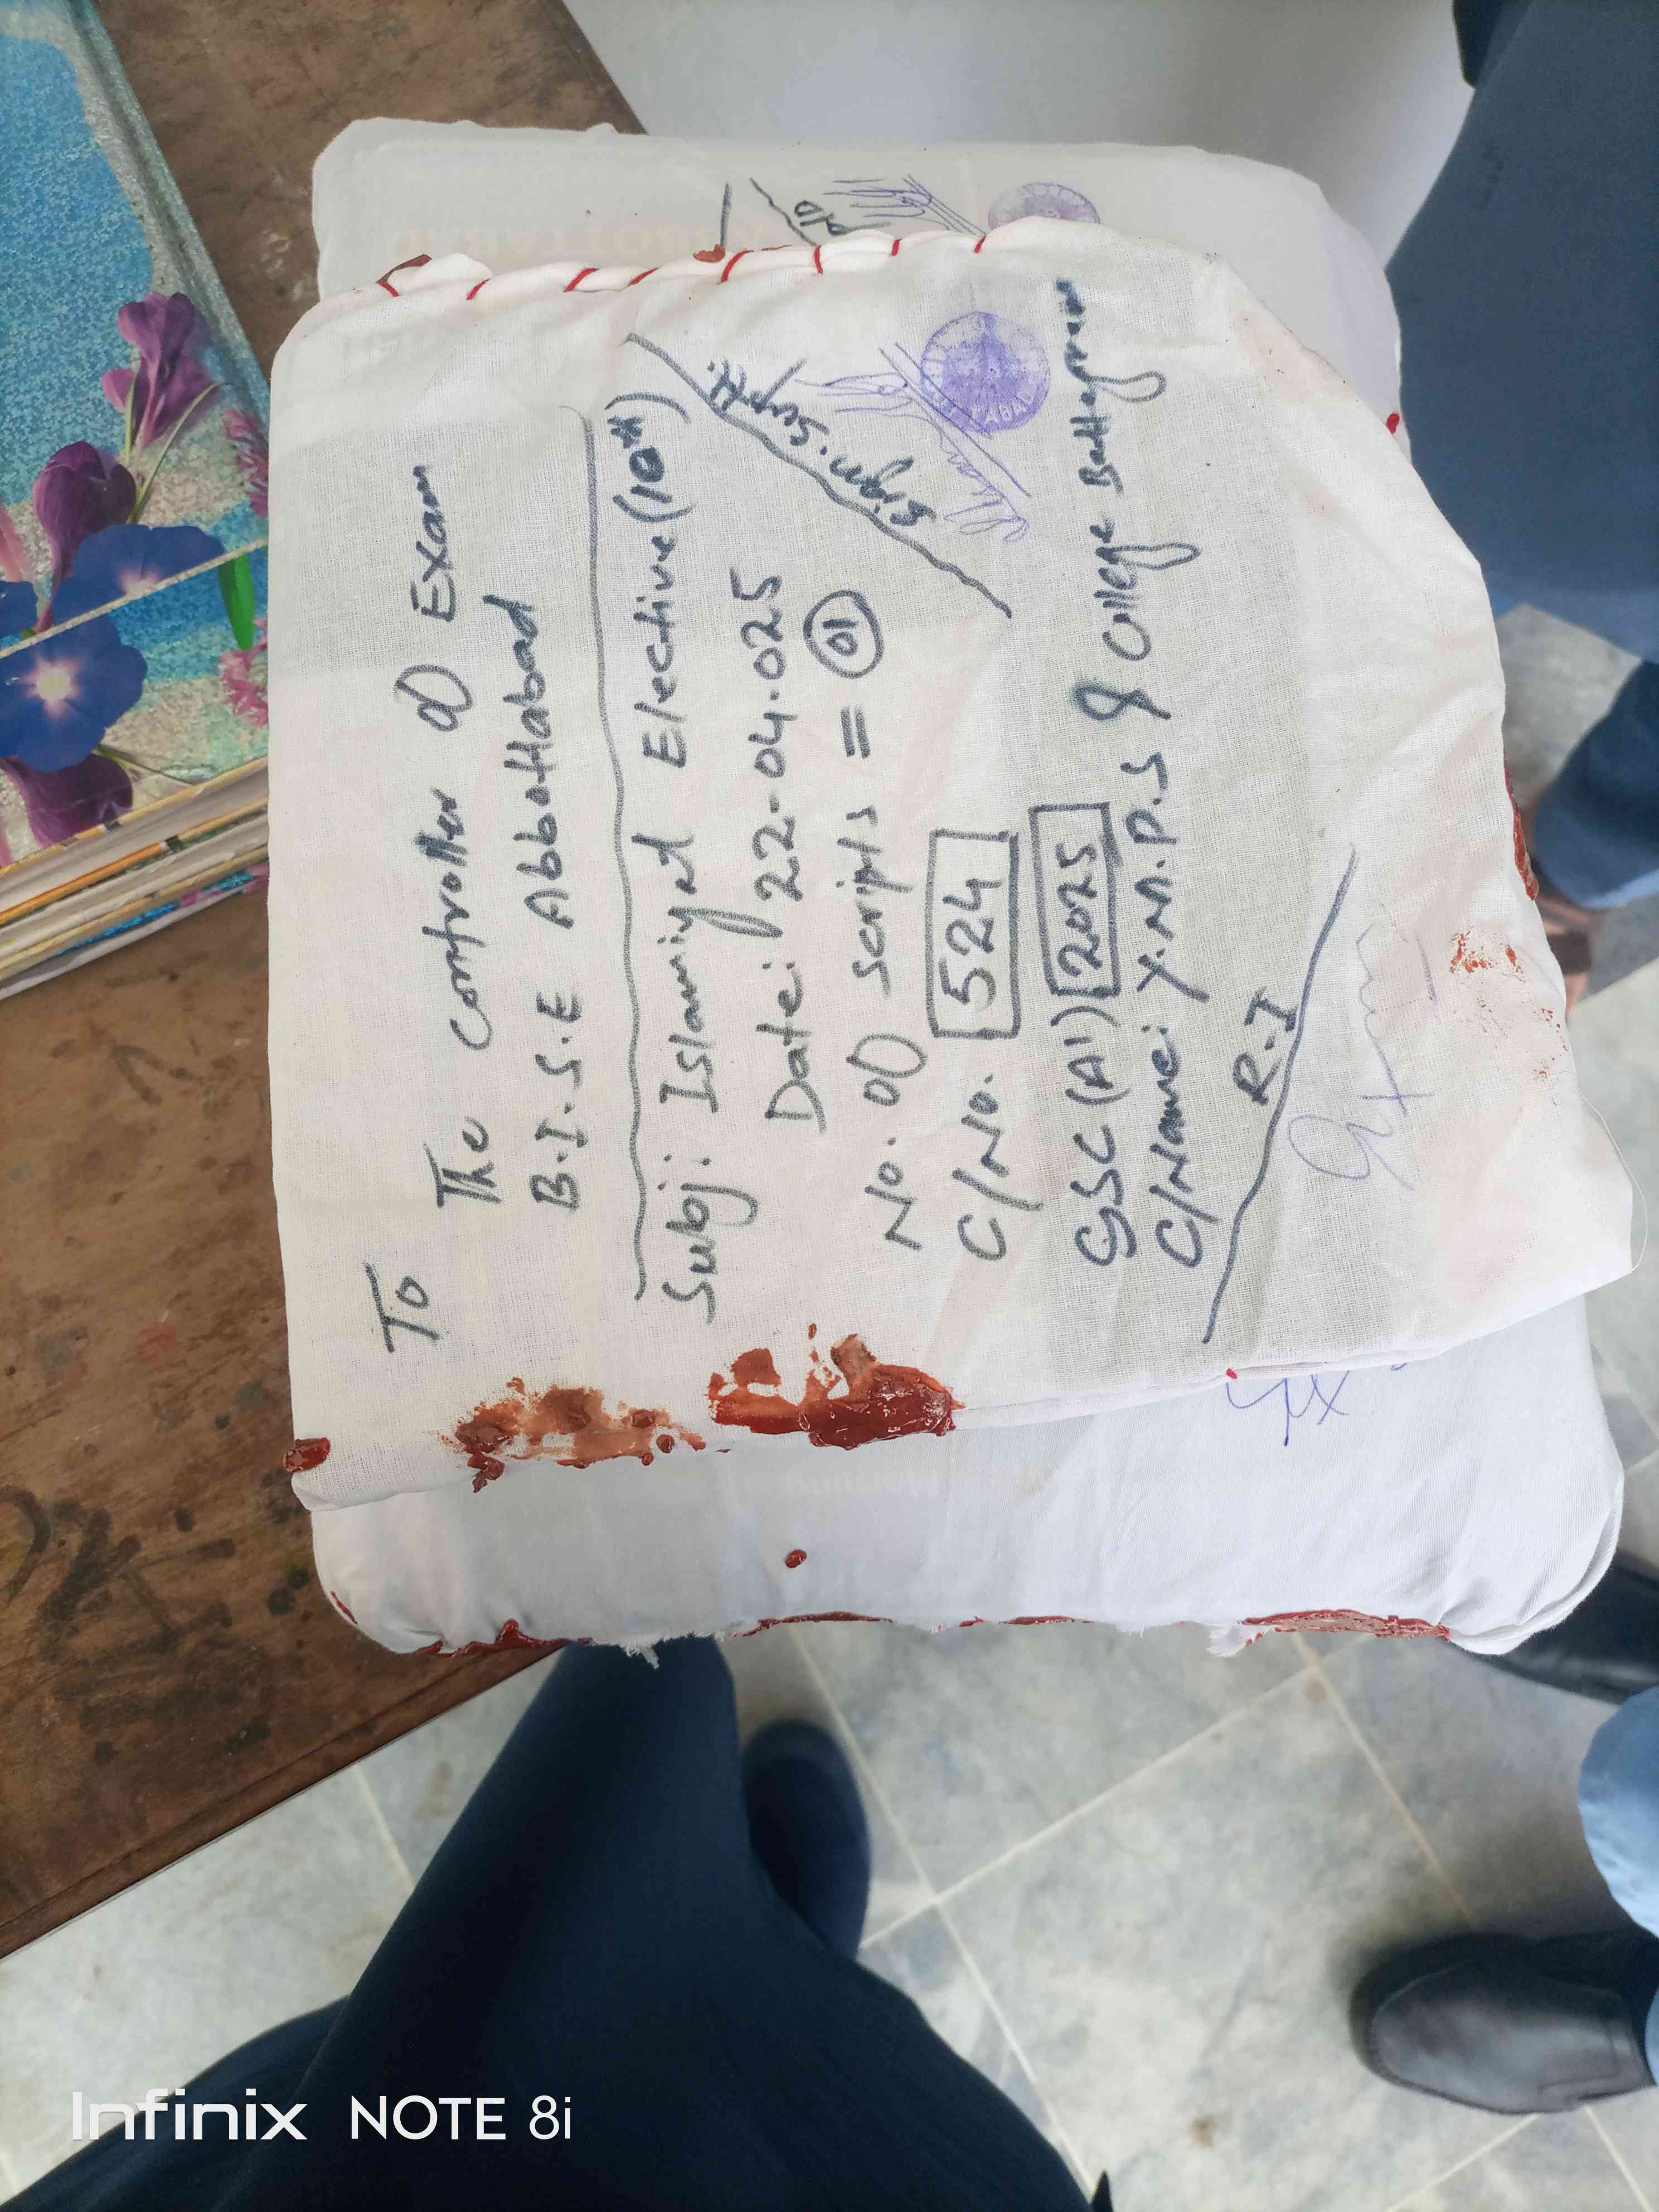 To
The Controller of Exam
B.I.S.E Abbottabad
Subj: Islamiyat Elective (10th)
Date: 22-04-025
No. of scripts = 01
C/No. 524
SSC (A1) 2025
C/Name: Y.M.P.S & College Battagram
Sign. Supdt:
R.I
Infinix NOTE 8i